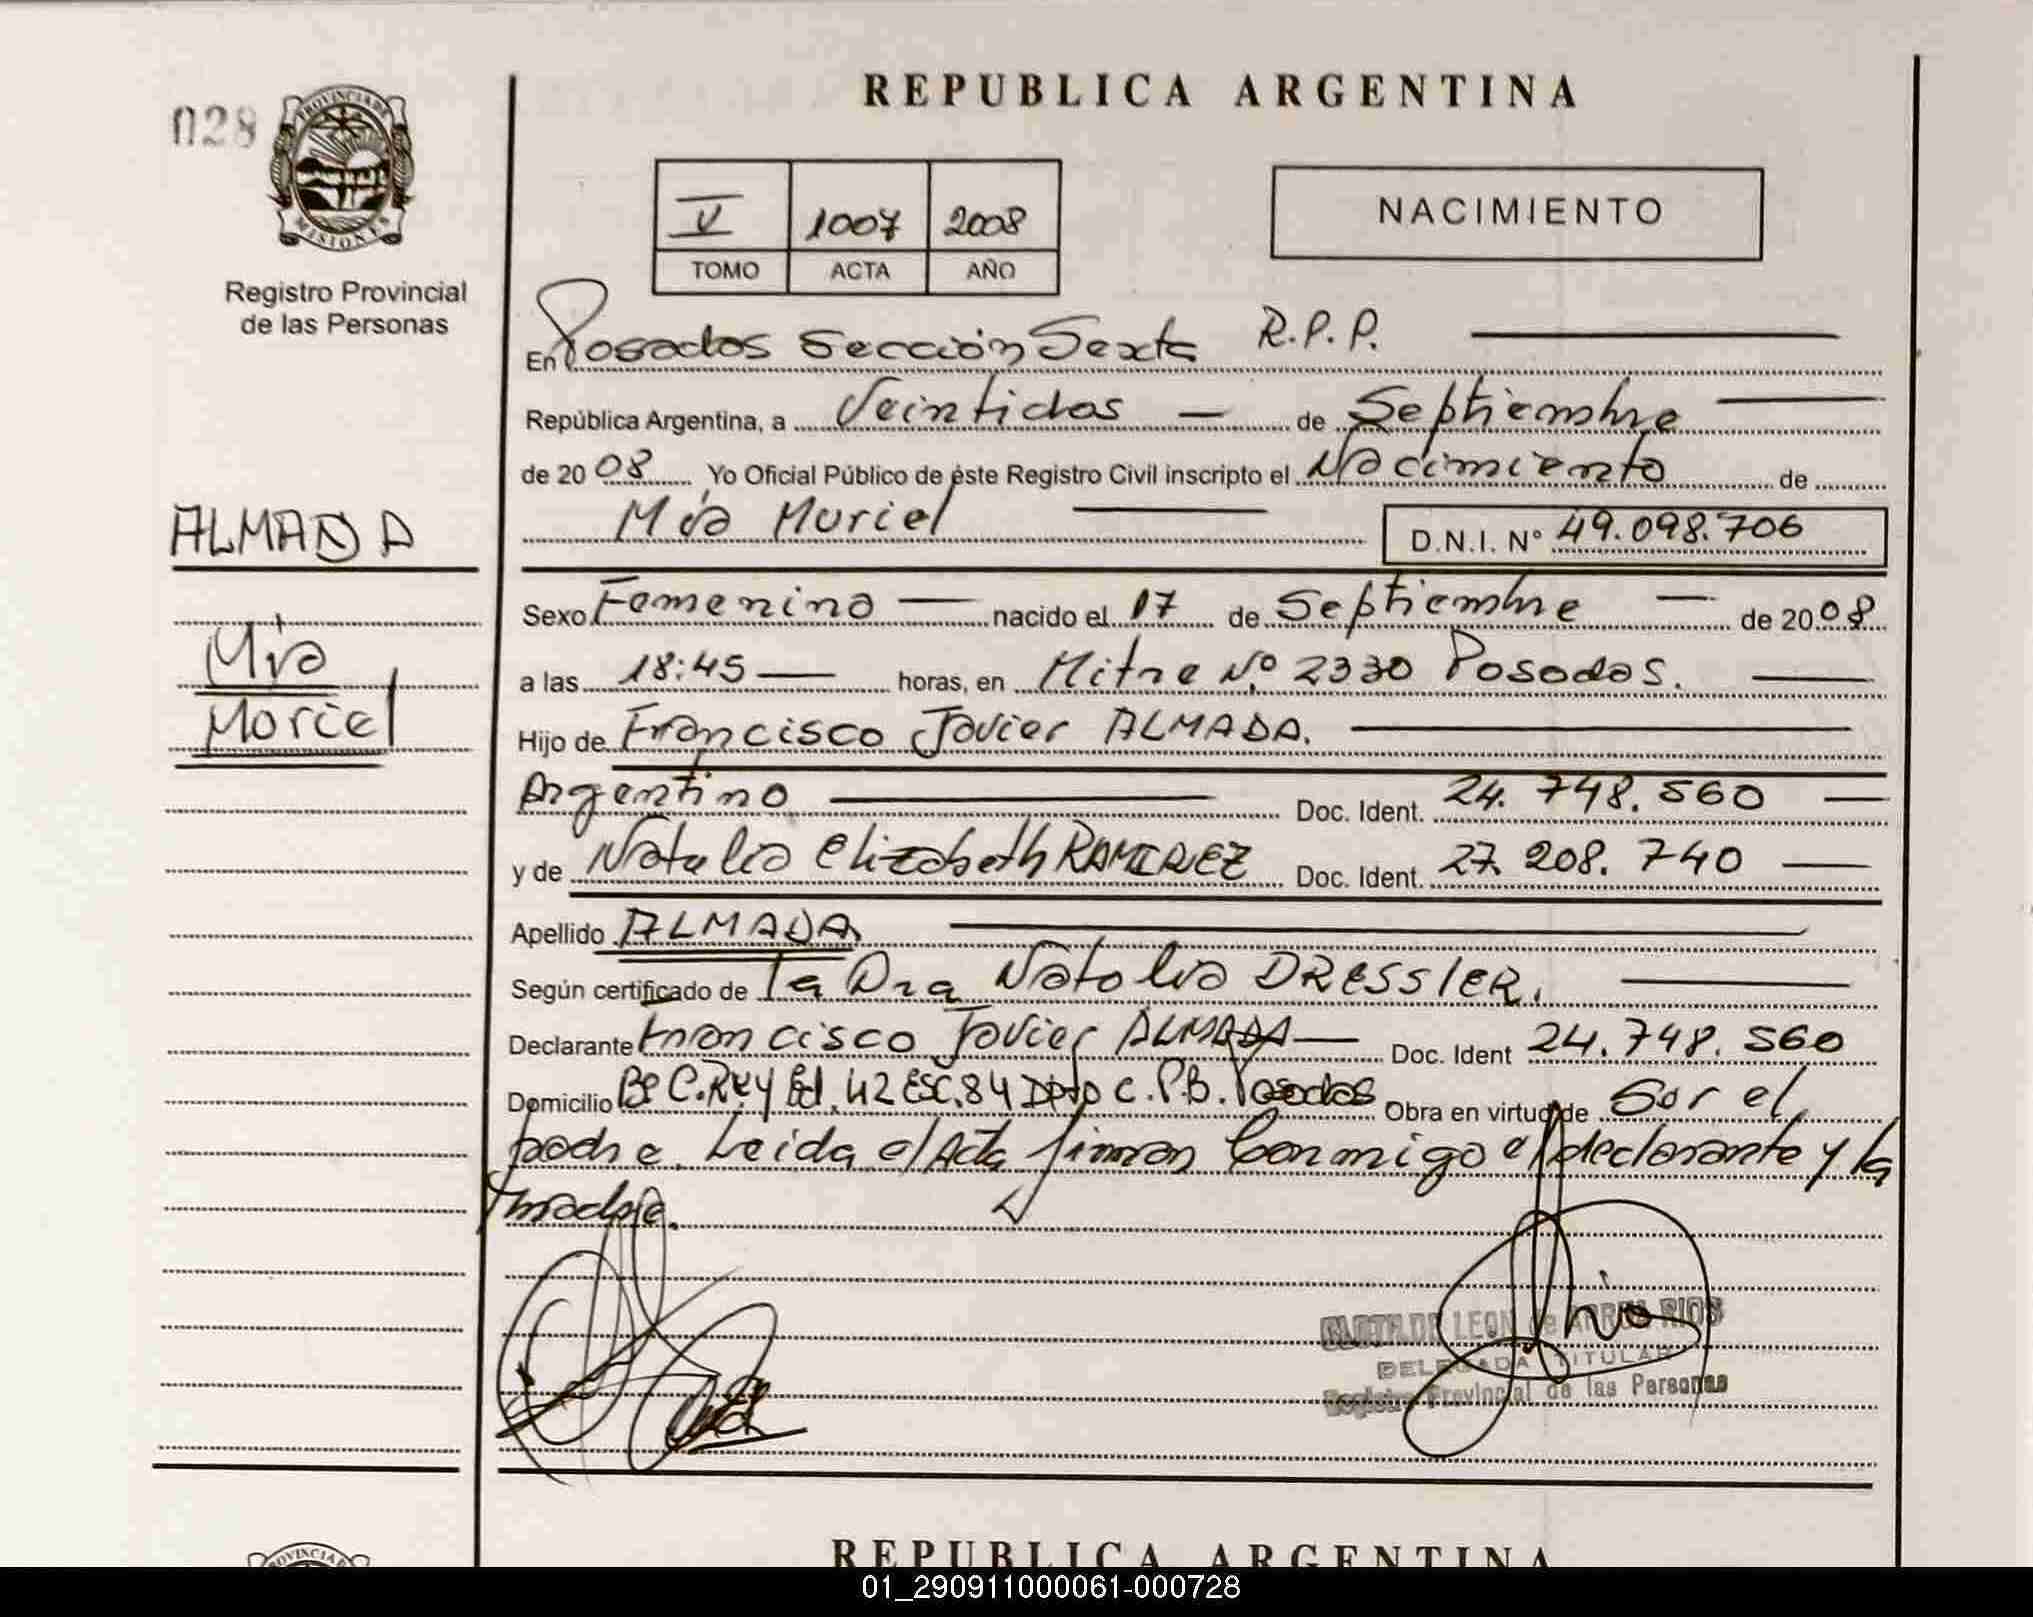 REPUBLICA ARGENTINA
028
PROVINCIA DE
MISIONES
Registro Provincial
de las Personas
V 1007 2008
TOMO ACTA AÑO
NACIMIENTO
En Posadas Sección Sexta R.P.P.
República Argentina, a Veintidos de Septiembre
de 2008 Yo Oficial Público de éste Registro Civil inscripto el Nacimiento de
Mía Muriel D.N.I. N° 49.098.706
ALMADA
Mía
Muriel
Sexo Femenino nacido el 17 de Septiembre de 2008
a las 18:45 horas, en Mitre Nº 2330 Posadas.
Hijo de Francisco Javier ALMADA.
Argentino Doc. Ident. 24.748.560
y de Natalia Elizabeth RAMIREZ Doc. Ident. 27.208.740
Apellido ALMADA
Según certificado de la Dra Natalia DRESSLER.
Declarante Francisco Javier ALMADA Doc. Ident 24.748.560
Domicilio Bº C. Rey Ed. 42 ESC. 84 Dpto C. P.B. Posadas Obra en virtud de Ser el
padre. Leida el Acta firman Conmigo el declarante y la
madre.
CLOTILDE LEON de ARRUA RIOS
DELEGADA TITULAR
Registro Provincial de las Personas
PROVINCIA DE
REPUBLICA ARGENTINA
01_290911000061-000728